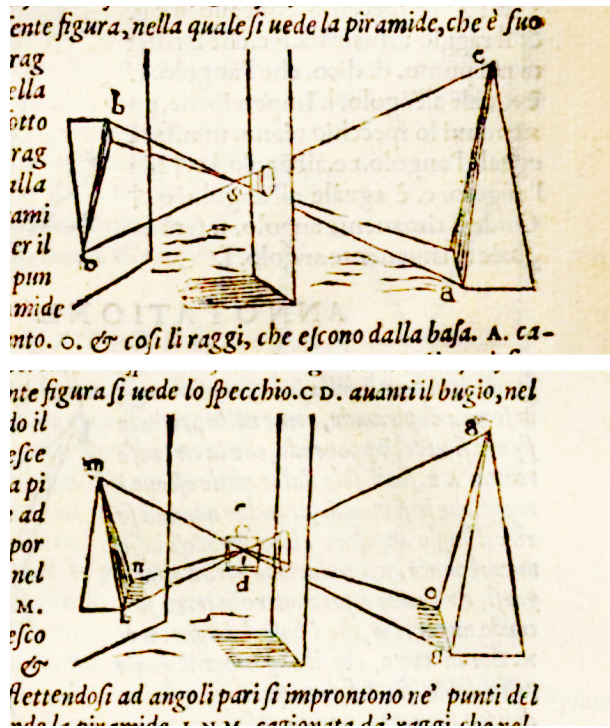 ente figura, nella quale ſi uede la piramide, che è ſuo
rag
ella
otto
rag
ulla
ami
er il
pun
amide
b
c
o
a
nto. O. & coſi li raggi, che eſcono dalla baſa. A. ca-
nte figura ſi uede lo ſpecchio. C D. auanti il bugio, nel
do il
eſce
a pi
e ad
por
nel
M.
eſco
&
m
n
d
g
o
flettendoſi ad angoli pari ſi improntono ne' punti del